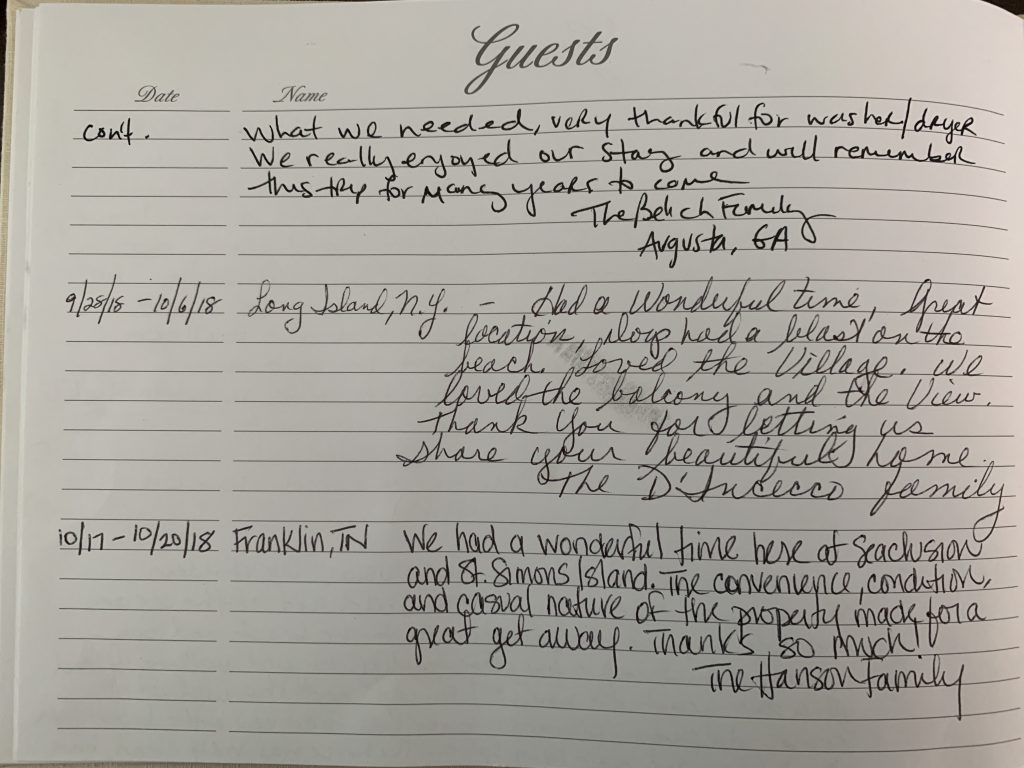 Guests
Date Name
con't. What we needed, very thankful for washer/dryer
We really enjoyed our stay and will remember
this trip for many years to come
The Family
Augusta, GA
9/28/18 - 10/6/18 Long Island, N.Y. - Had a wonderful time, Great
location, dogs had a blast on the
beach. Loved the Village. We
loved the balcony and the View.
Thank You for letting us
share your beautiful home.
The family
10/17 - 10/20/18 Franklin, TN We had a wonderful time here at Seaclusion
and St. Simons Island. The convenience, condition,
and casual nature of the property made for a
great get away. Thanks so much!
The Hanson Family